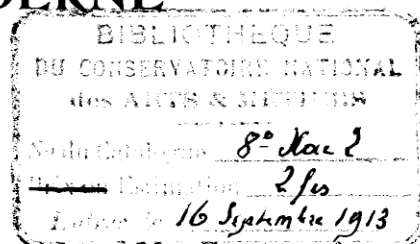 BIBLIOTHÈQUE
DU CONSERVATOIRE NATIONAL
des ARTS & MÉTIERS
N° du Catalogue 8°
Prix ou Estimation 2 fcs
Entrée le 16 Septembre 1913